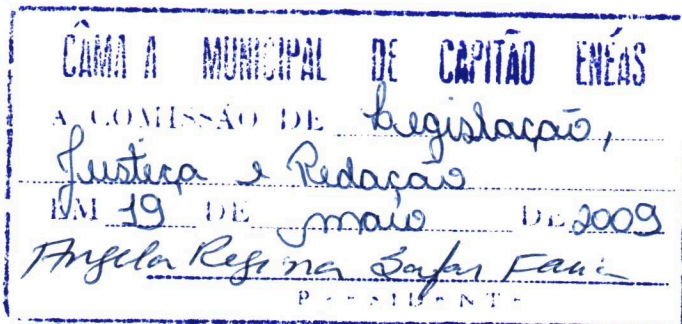 CÂMARA MUNICIPAL DE CAPITÃO ENÉAS
A COMISSÃO DE Legislação,
Justiça e Redação
EM 19 DE maio DE 2009
Angela Regina Safar Faria
PRESIDENTE